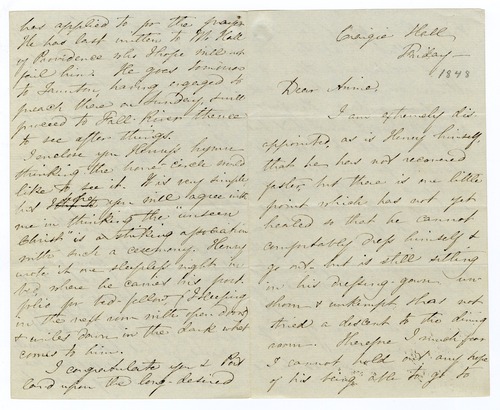 Craigie Hall,
Friday –
1848
Dear Annie,
I am extremely dis
appointed, as is Henry himself,
that he has not recovered
faster, but there is one little
point which has not yet
healed so that he cannot
comfortably dress himself &
go out – but is still sitting
in his dressing-gown un
shorn & unkempt & has not
tried a descent to the dining
room – Therefore I much fear
I cannot hold out any hope
of his being able to go to
has applied to for the
He has last written to Mr Hall
of Providence who I hope will not
fail him. He goes tomorrow
to Taunton, having engaged to
preach there on Sunday, & will
proceed to Fall-River thence
to see after things.
I enclose you Henry's hymn
thinking the home-circle would
like to see it. It is very simple
but I you will agree with
me in thinking "the unseen
Christ" is a striking
with such a ceremony. Henry
wrote it one sleepless night in
bed where he carries his port-
folio for bed-fellow (I sleeping
in the next room with open doors)
& writes down in the dark what
comes to him.
I congratulate you &
upon the long-desired